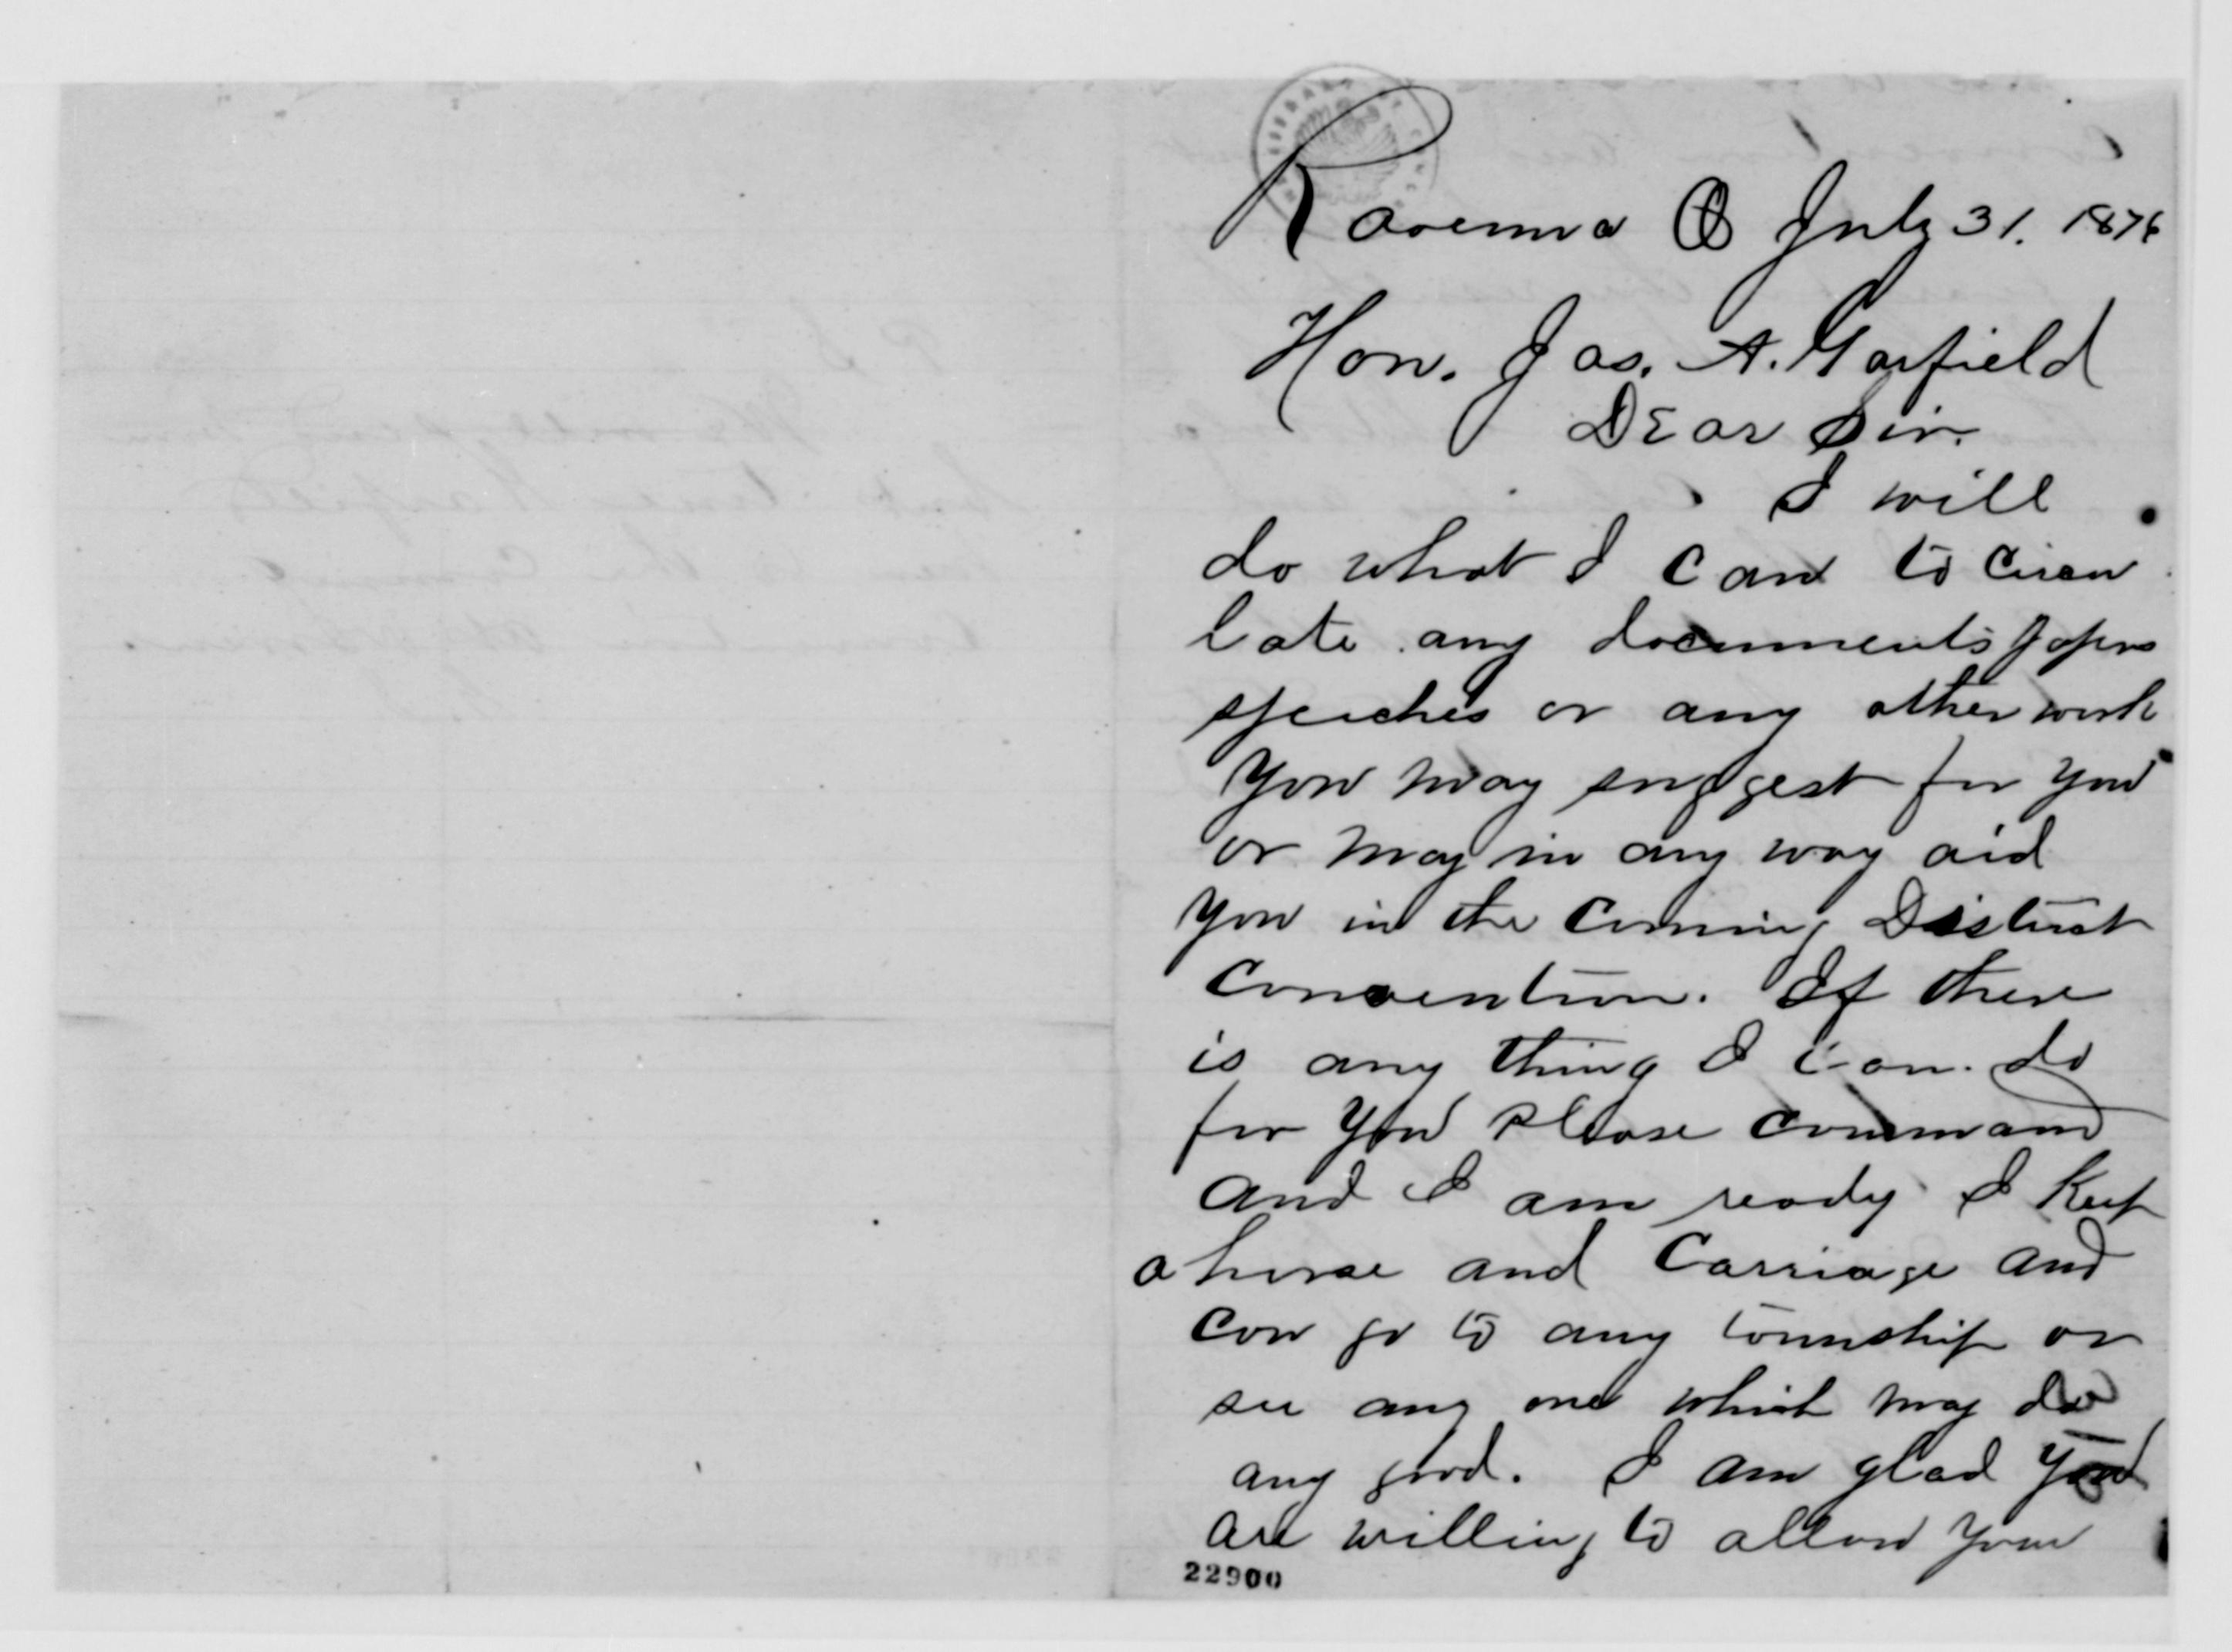 Ravenna O July 31. 1876
Hon. Jas. A. Garfield
Dear Sir.
I will
do what I can to circu
late any documents papers
speeches or any other work
you may suggest for you
or may in any way aid
you in the coming District
Convention. If there
is any thing I can do
for you please command
and I am ready I keep
a horse and carriage and
can go to any township or
see any one which may do
any good. I am glad you
are willing to allow your
22900